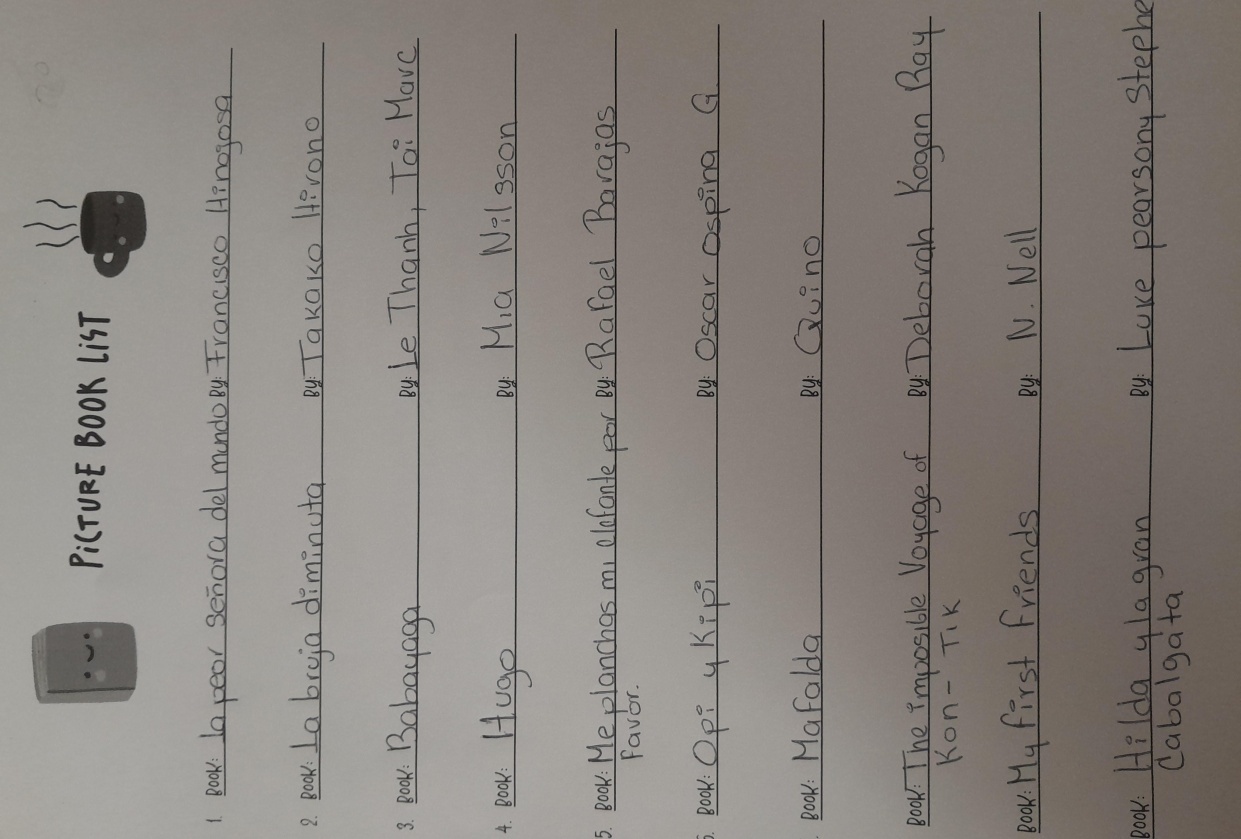 PiCTURE BOOK LiST
1. BOOK: la peor señora del mundo By: Francisco Hinojosa
2. BOOK: La bruja diminuta By: Takako Hirono
3. BOOK: Babayaga By: Le Thanh, Tai Marc
4. BOOK: Hugo By: Mia Nilsson
5. BOOK: Me planchas mi elefante por By: Rafael Barajas
Favor.
BOOK: Opi y Kipi By: Oscar ospina Q
BOOK: Mafalda By: Quino
BOOK: The imposible Voyage of By: Deborah Kogan Ray
Kon- Tik
BOOK: My first friends By: N. Nell
BOOK: Hilda y la gran By: Luke pearson y Stephe
Cabalgata